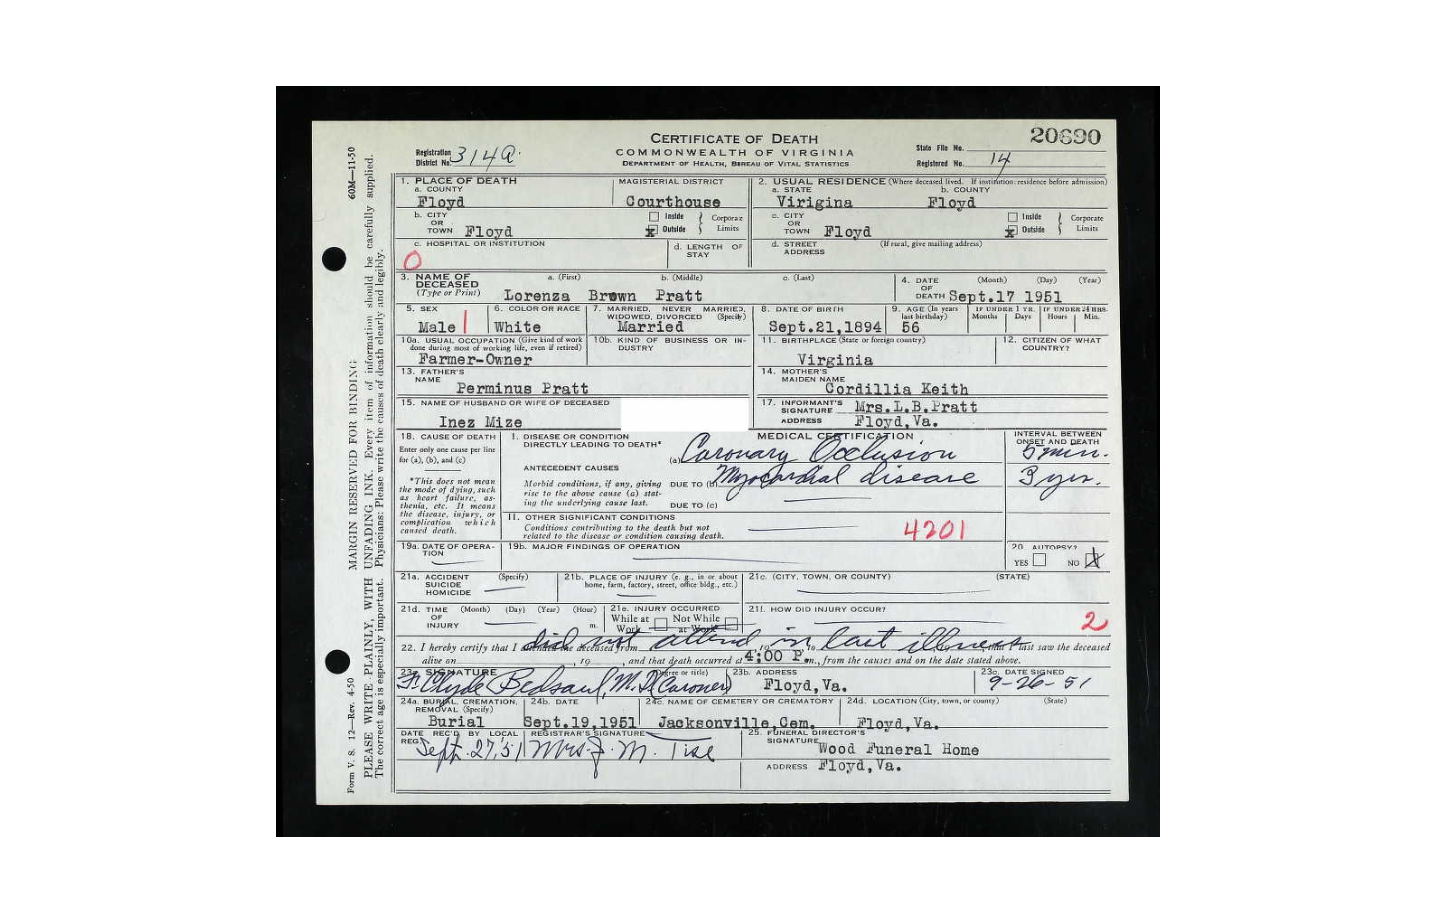 CERTIFICATE OF DEATH
COMMONWEALTH OF VIRGINIA
DEPARTMENT OF HEALTH, BUREAU OF VITAL STATISTICS
Registration District No. 314A
20690
State File No.
Registered No. 14
1. PLACE OF DEATH
a. COUNTY Floyd
MAGISTERIAL DISTRICT Courthouse
2. USUAL RESIDENCE (Where deceased lived. If institution: residence before admission)
a. STATE Virigina
b. COUNTY Floyd
b. CITY OR TOWN Floyd
Inside
x Outside
Corporate Limits
c. CITY OR TOWN Floyd
Inside
x Outside
Corporate Limits
c. HOSPITAL OR INSTITUTION
0
d. LENGTH OF STAY
d. STREET ADDRESS
(If rural, give mailing address)
3. NAME OF DECEASED
(Type or Print)
a. (First) b. (Middle) c. (Last)
Lorenza Brown Pratt
4. DATE OF DEATH
(Month) (Day) (Year)
Sept.17 1951
5. SEX
Male 1
6. COLOR OR RACE
White
7. MARRIED, NEVER MARRIED, WIDOWED, DIVORCED (Specify)
Married
8. DATE OF BIRTH
Sept.21,1894
9. AGE (In years last birthday)
56
IF UNDER 1 YR. Months Days
IF UNDER 24 HRS. Hours Min.
10a. USUAL OCCUPATION (Give kind of work done during most of working life, even if retired)
Farmer-Owner
10b. KIND OF BUSINESS OR INDUSTRY
11. BIRTHPLACE (State or foreign country)
Virginia
12. CITIZEN OF WHAT COUNTRY?
13. FATHER'S NAME
Perminus Pratt
14. MOTHER'S MAIDEN NAME
Cordillia Keith
15. NAME OF HUSBAND OR WIFE OF DECEASED
Inez Mize
17. INFORMANT'S SIGNATURE Mrs.L.B.Pratt
ADDRESS Floyd,Va.
18. CAUSE OF DEATH
Enter only one cause per line for (a), (b), and (c)
*This does not mean the mode of dying, such as heart failure, asthenia, etc. It means the disease, injury, or complication which caused death.
MEDICAL CERTIFICATION
INTERVAL BETWEEN ONSET AND DEATH
I. DISEASE OR CONDITION DIRECTLY LEADING TO DEATH*
(a) Coronary Occlusion 5 min.
ANTECEDENT CAUSES
Morbid conditions, if any, giving rise to the above cause (a) stating the underlying cause last.
DUE TO (b) Myocardial disease 3 yrs.
DUE TO (c)
II. OTHER SIGNIFICANT CONDITIONS
Conditions contributing to the death but not related to the disease or condition causing death.
4201
19a. DATE OF OPERATION
19b. MAJOR FINDINGS OF OPERATION
20. AUTOPSY?
YES NO X
21a. ACCIDENT SUICIDE HOMICIDE (Specify)
21b. PLACE OF INJURY (e. g., in or about home, farm, factory, street, office bldg., etc.)
21c. (CITY, TOWN, OR COUNTY) (STATE)
21d. TIME OF INJURY (Month) (Day) (Year) (Hour) m.
21e. INJURY OCCURRED
While at Work Not While at Work
21f. HOW DID INJURY OCCUR?
2
did not attend in last illness
22. I hereby certify that I attended the deceased from that I last saw the deceased
alive on , 19 , and that death occurred at 4:00 P.m., from the causes and on the date stated above.
23a. SIGNATURE (Degree or title)
Clyde Bedsaul, M.D. (Coroner)
23b. ADDRESS
Floyd,Va.
23c. DATE SIGNED
9-26-51
24a. BURIAL, CREMATION, REMOVAL (Specify)
Burial
24b. DATE
Sept.19,1951
24c. NAME OF CEMETERY OR CREMATORY
Jacksonville,Cem.
24d. LOCATION (City, town, or county) (State)
Floyd,Va.
DATE REC'D BY LOCAL REG.
Sept. 27, 51
REGISTRAR'S SIGNATURE
Mrs. J. M. Tise
25. FUNERAL DIRECTOR'S SIGNATURE Wood Funeral Home
ADDRESS Floyd,Va.
Form V. S. 12—Rev. 4-50 MARGIN RESERVED FOR BINDING 60M—11-50
PLEASE WRITE PLAINLY, WITH UNFADING INK. Every item of information should be carefully supplied.
The correct age is especially important. Physicians: Please write the causes of death clearly and legibly.